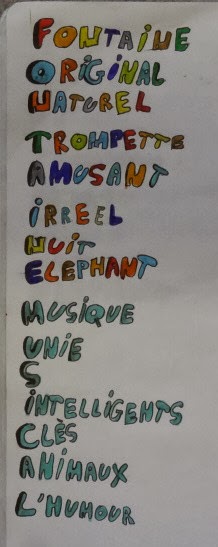 FONTAINE
ORIGINAL
NATUREL
TROMPETTE
AMUSANT
IRREEL
NUIT
ELEPHANT
MUSIQUE
UNIE
S
INTELLIGENTS
CLÈS
ANIMAUX
L'HUMOUR